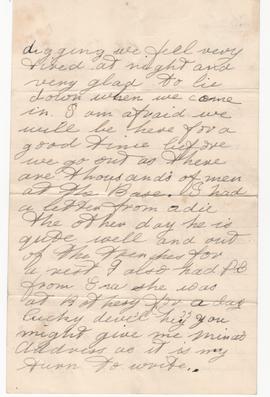 digging we feel very
tired at night and
very glad to lie
down when we come
in. I am afraid we
will be here for a
good time before
we go out as there
are thousands of men
at the Base. I had
a letter from adie
the other day he is
quite well and out
of the trenches for
a rest I also had P.C
from Eva she was
at Bethesy for a day
lucky devil hey you
might give me Minas
address as it is my
turn to write.